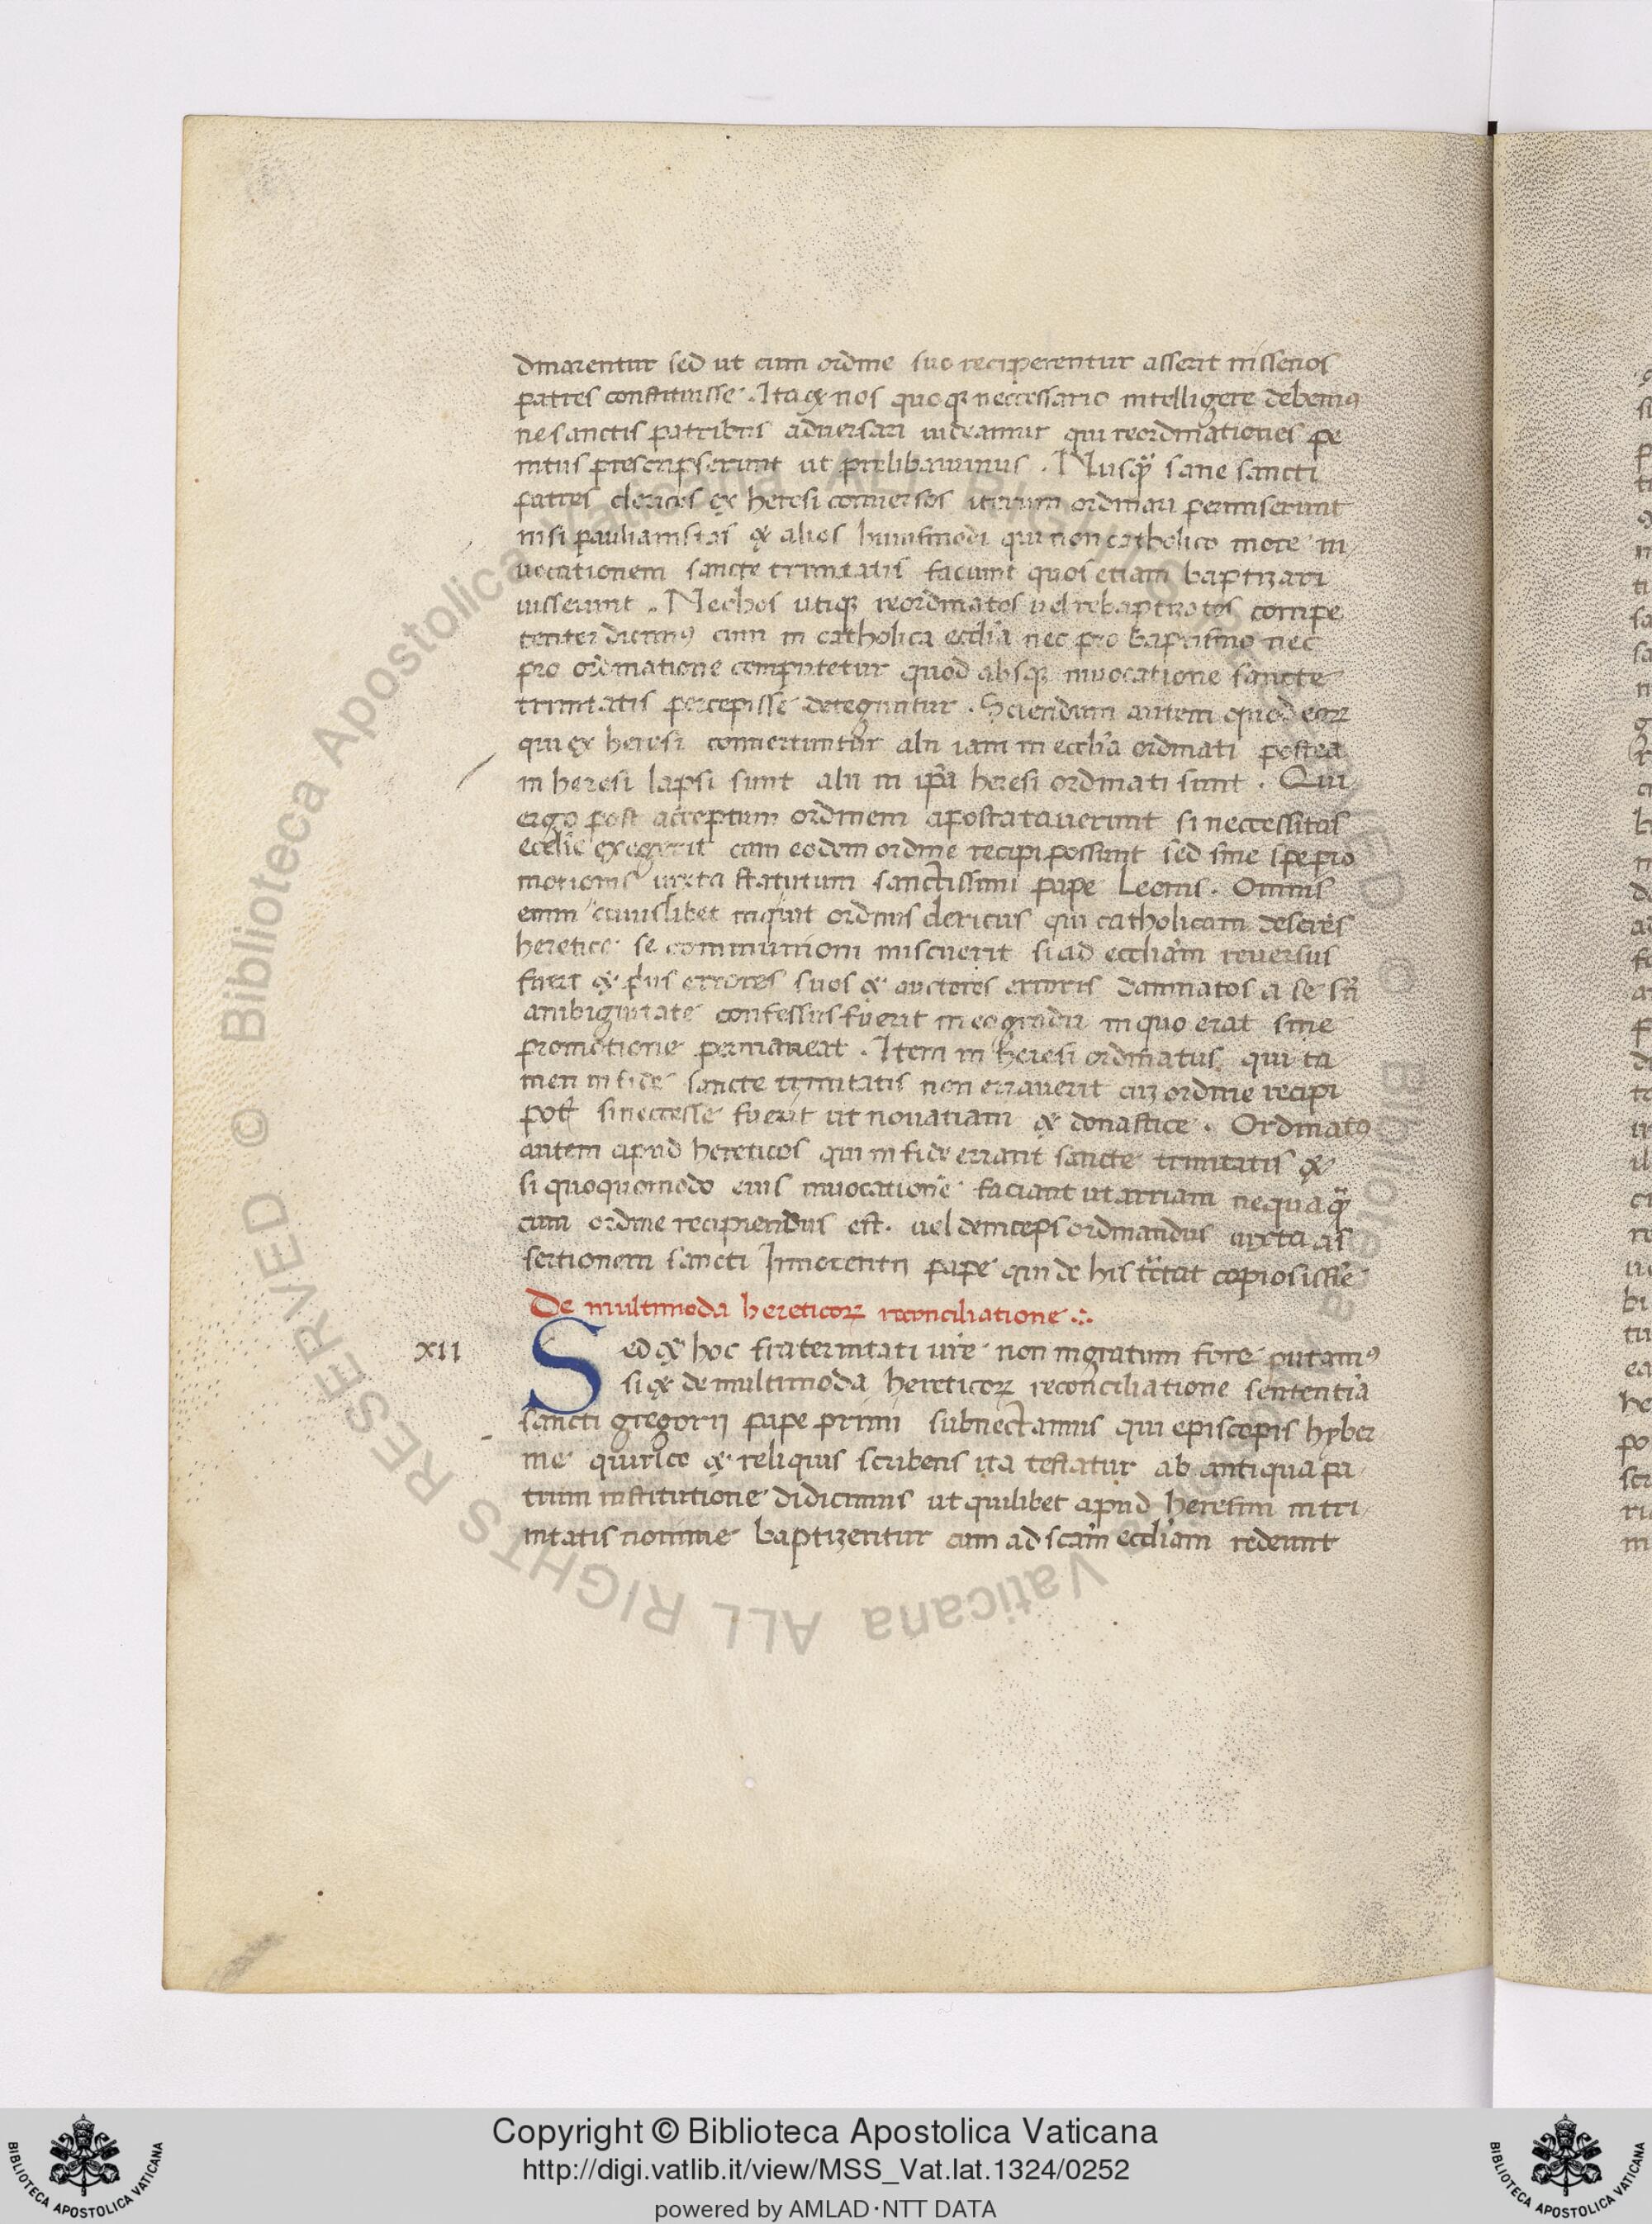 dinarentur sed ut cum ordine suo reciperentur asserit nissenos
patres constituisse. Itaq; nos quoq; neccessario intelligere debem9
ne sanctis patribus aduersari uideamur qui reordinationes pe
nitus prescripserunt ut prelibauimus. Nusq̃ sane sancti
patres clericos ex heresi conuersos iterum ordinari permiserunt
nisi paulianistas & alios huiusmodi qui non catholico more in/
uocationem sancte trinitatis faciunt quos etiam baptizari
iusserunt. Nec hos utiq; reordinatos uel rebaptizatos compe
tenter dicim9 cum in catholica ecclia nec pro baptismo nec
pro ordinatione computetur quod absq; inuocatione sancte
trinitatis percepisse deteguntur. Sciendum autem quod eoꝝ
qui ex heresi conuertuntur alii iam in ecclia ordinati postea
in heresi lapsi sunt alii in ipa heresi ordinati sunt. Qui
ergo post acceptum ordinem apostatauerunt si neccessitas
ecclie exegerit cum eodem ordine recipi possunt sed sine spe pro
motionis iuxta statutum sanctissimi pape Leonis. Omnis
enim cuiuslibet inquit ordinis clericus qui catholicam deseres
heretice se communioni miscuerit si ad eccliam reuersus
fuerit & pius errores suos & auctores erroris damnatos a se sñ
ambiguitate confessus fuerit in eo gradu in quo erat sine
promotione permaneat. Item in heresi ordinatus qui ta
men in fide sancte trinitatis non errauerit cuz ordine recipi
pott si neccesse fuerit ut nouatiani & donastice. Ordinato
autem apud hereticos qui in fide errant sancte trinitatis &
si quoquomodo eius inuocatione faciant ut arriani nequaq̃
cum ordine recipiendus est. uel deinceps ordinandus iuxta as
sertionem sancti Innocentii pape qui de his tractat copiosissie
De multimoda hereticoꝝ reconciliatione
xii
Sed & hoc fraternitati ure non ingratum fore putam9
si & de multimoda hereticoꝝ reconciliatione sententia
sancti gregorii pape primi subnectamus qui episcopis hyber
nie quirico & reliquis scribens ita testatur ab antiqua pa
trum institutione didicimus ut quilibet apud heresim in tri/
nitatis nomine baptizentur cum ad scam eccliam redeunt
Copyright © Biblioteca Apostolica Vaticana
http://digi.vatlib.it/view/MSS_Vat.lat.1324/0252
powered by AMLAD·NTT DATA
BIBLIOTECA APOSTOLICA VATICANA
BIBLIOTECA APOSTOLICA VATICANA
© Biblioteca Apostolica Vaticana ALL RIGHTS RESERVED
© Biblioteca Apostolica Vaticana ALL RIGHTS RESERVED